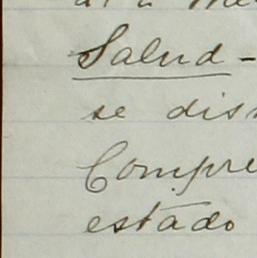 Salud -
se dis
Compre
estado